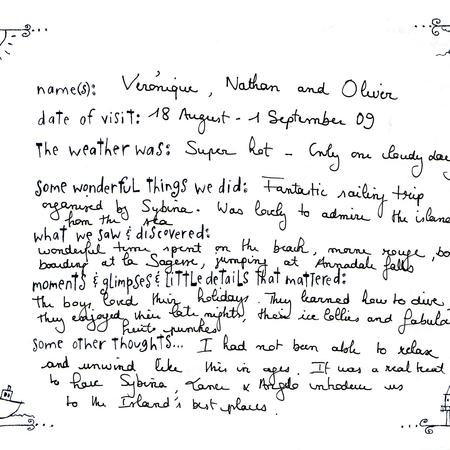 name(s): Véronique, Nathan and Oliver
date of visit: 18 August - 1 September 09
the weather was: Super hot - Only one cloudy day
some wonderful things we did: Fantastic sailing trip
organised by Sybina. Was lovely to admire the island
from the sea
what we saw & discovered:
wonderful time spent on the beach, morne rouge,
boarding at la Sagesse, jumping at Annadale falls
moments & glimpses & little details that mattered:
the boys loved their holidays. They learned how to dive
they enjoyed their late nights, their ice lollies and fabulo
fruits punches
some other thoughts... I had not been able to relax
and unwind like this in ages. It was a real treat
to have Sybina, Lance & Angelo introduce us
to the Island's best places.